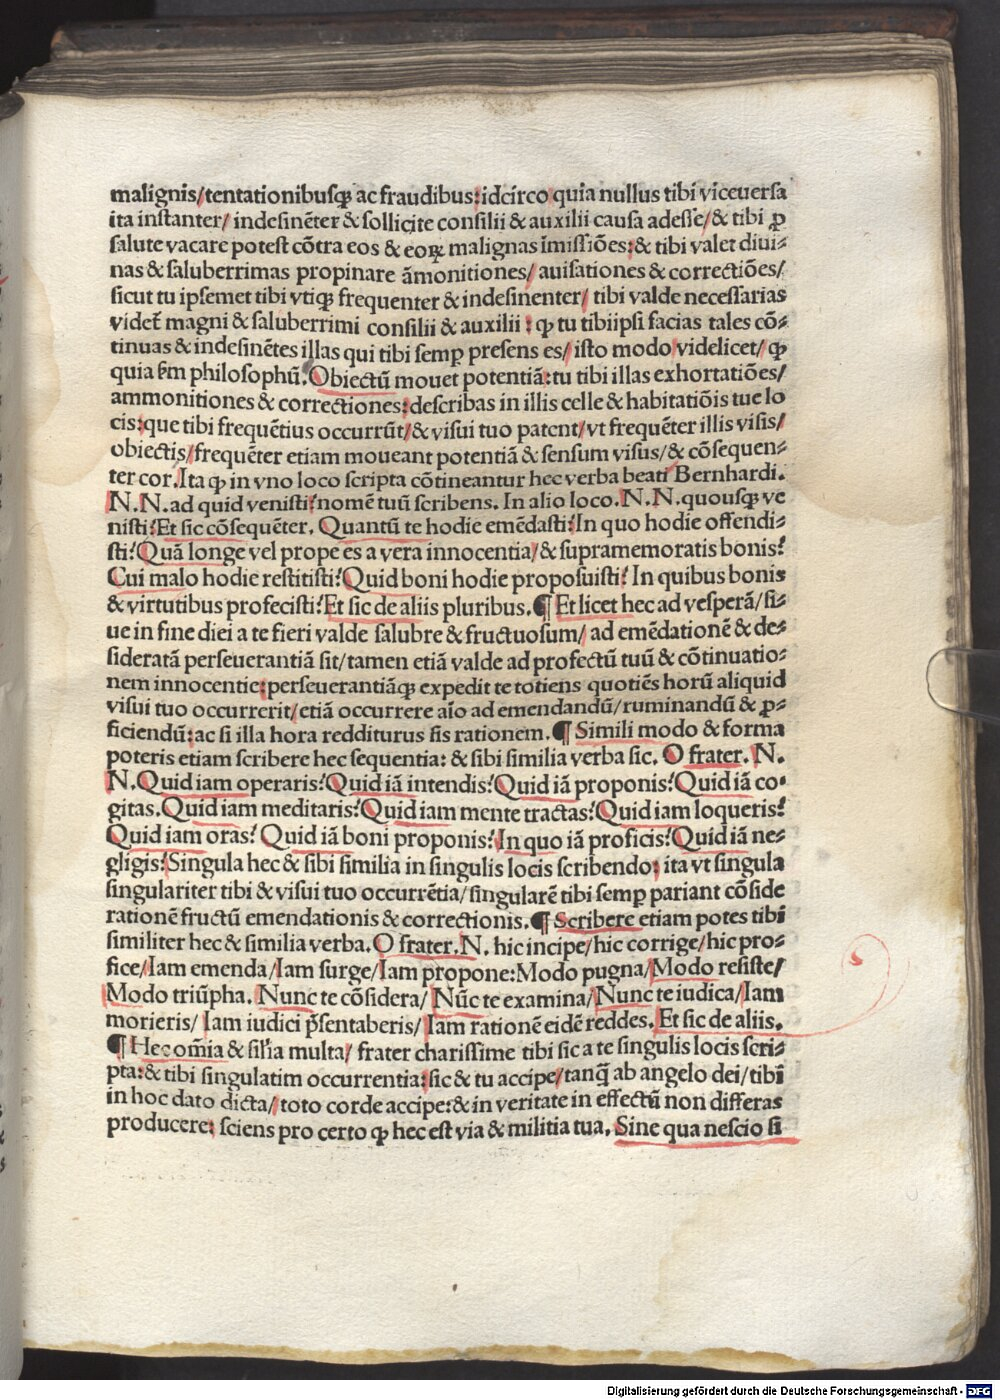 malignis/tentationibusꝙ ac fraudibus:idcirco quia nullus tibi viceuersa
ita instanter/ indesinēter & sollicite consilii & auxilii causa adesse/& tibi ꝓ
salute vacare potest cōtra eos & eoꝝ malignas īmissiōes:& tibi valet diui⸗
nas & saluberrimas propinare āmonitiones/ auisationes & correctiōes/
sicut tu ipsemet tibi vtiqꝫ frequenter & indesinenter/ tibi valde necessarias
videt̄ magni & saluberrimi consilii & auxilii : ꝙ tu tibiipsi facias tales cō⸗
tinuas & indesinētes illas qui tibi semꝑ presens es/ isto modo videlicet/ ꝙ
quia ẜm philosophū. Obiectū mouet potentiā:tu tibi illas exhortatiōes/
ammonitiones & correctiones:describas in illis celle & habitatiōis tue lo
cis:que tibi frequētius occurrūt/& visui tuo patent/vt frequēter illis visis/
obiectis/frequēter etiam moueant potentiā & sensum visus/& cōsequen⸗
ter cor. Ita ꝙ in vno loco scripta cōtineantur hec verba beati Bernhardi.
N. N. ad quid venisti?nomē tuū scribens. In alio loco. N. N. quousqꝫ ve
nisti?Et sic cōsequēter. Quantū te hodie emēdasti?In quo hodie offendi⸗
sti?Quā longe vel prope es a vera innocentia/& supramemoratis bonis?
Cui malo hodie restitisti?Quid boni hodie proposuisti? In quibus bonis
& virtutibus profecisti?Et sic de aliis pluribus. ¶ Et licet hec ad vesperā/si⸗
ue in fine diei a te fieri valde salubre & fructuosum/ ad emēdationē & de⸗
sideratā perseuerantiā sit/tamen etiā valde ad profectū tuū & cōtinuatio⸗
nem innocentie:perseuerantiāqꝫ expedit te totiens quotiēs horū aliquid
visui tuo occurrerit/etiā occurrere aīo ad emendandū/ruminandū & ꝓ⸗
ficiendū:ac si illa hora redditurus sis rationem. ¶ Simili modo & forma
poteris etiam scribere hec sequentia: & sibi similia verba sic. O frater. N.
N. Quid iam operaris?Quid iā intendis?Quid iā proponis?Quid iā co⸗
gitas. Quid iam meditaris?Quid iam mente tractas?Quid iam loqueris?
Quid iam oras? Quid iā boni proponis?In quo iā proficis?Quid iā ne⸗
gligis?Singula hec & sibi similia in singulis locis scribendo: ita vt singula
singulariter tibi & visui tuo occurrētia/singularē tibi semꝑ pariant cōside
rationē fructū emendationis & correctionis. ¶ Scribere etiam potes tibi
similiter hec & similia verba. O frater. N. hic incipe/hic corrige/hic pro⸗
fice/Iam emenda/Iam surge/Iam propone:Modo pugna/Modo resiste/
Modo triūpha. Nunc te cōsidera/ Nūc te examina/Nunc te iudica/Iam
morieris/ Iam iudici p̄sentaberis/Iam rationē eidē reddes. Et sic de aliis.
¶ Hec om̄ia & sil̄ia multa/ frater charissime tibi sic a te singulis locis scri⸗
pta:& tibi singulatim occurrentia:sic & tu accipe/tanq̄ ab angelo dei/tibi
in hoc dato dicta/toto corde accipe:& in veritate in effectū non differas
producere: sciens pro certo ꝙ hec est via & militia tua. Sine qua nescio si
Digitalisierung gefördert durch die Deutsche Forschungsgemeinschaft - DFG